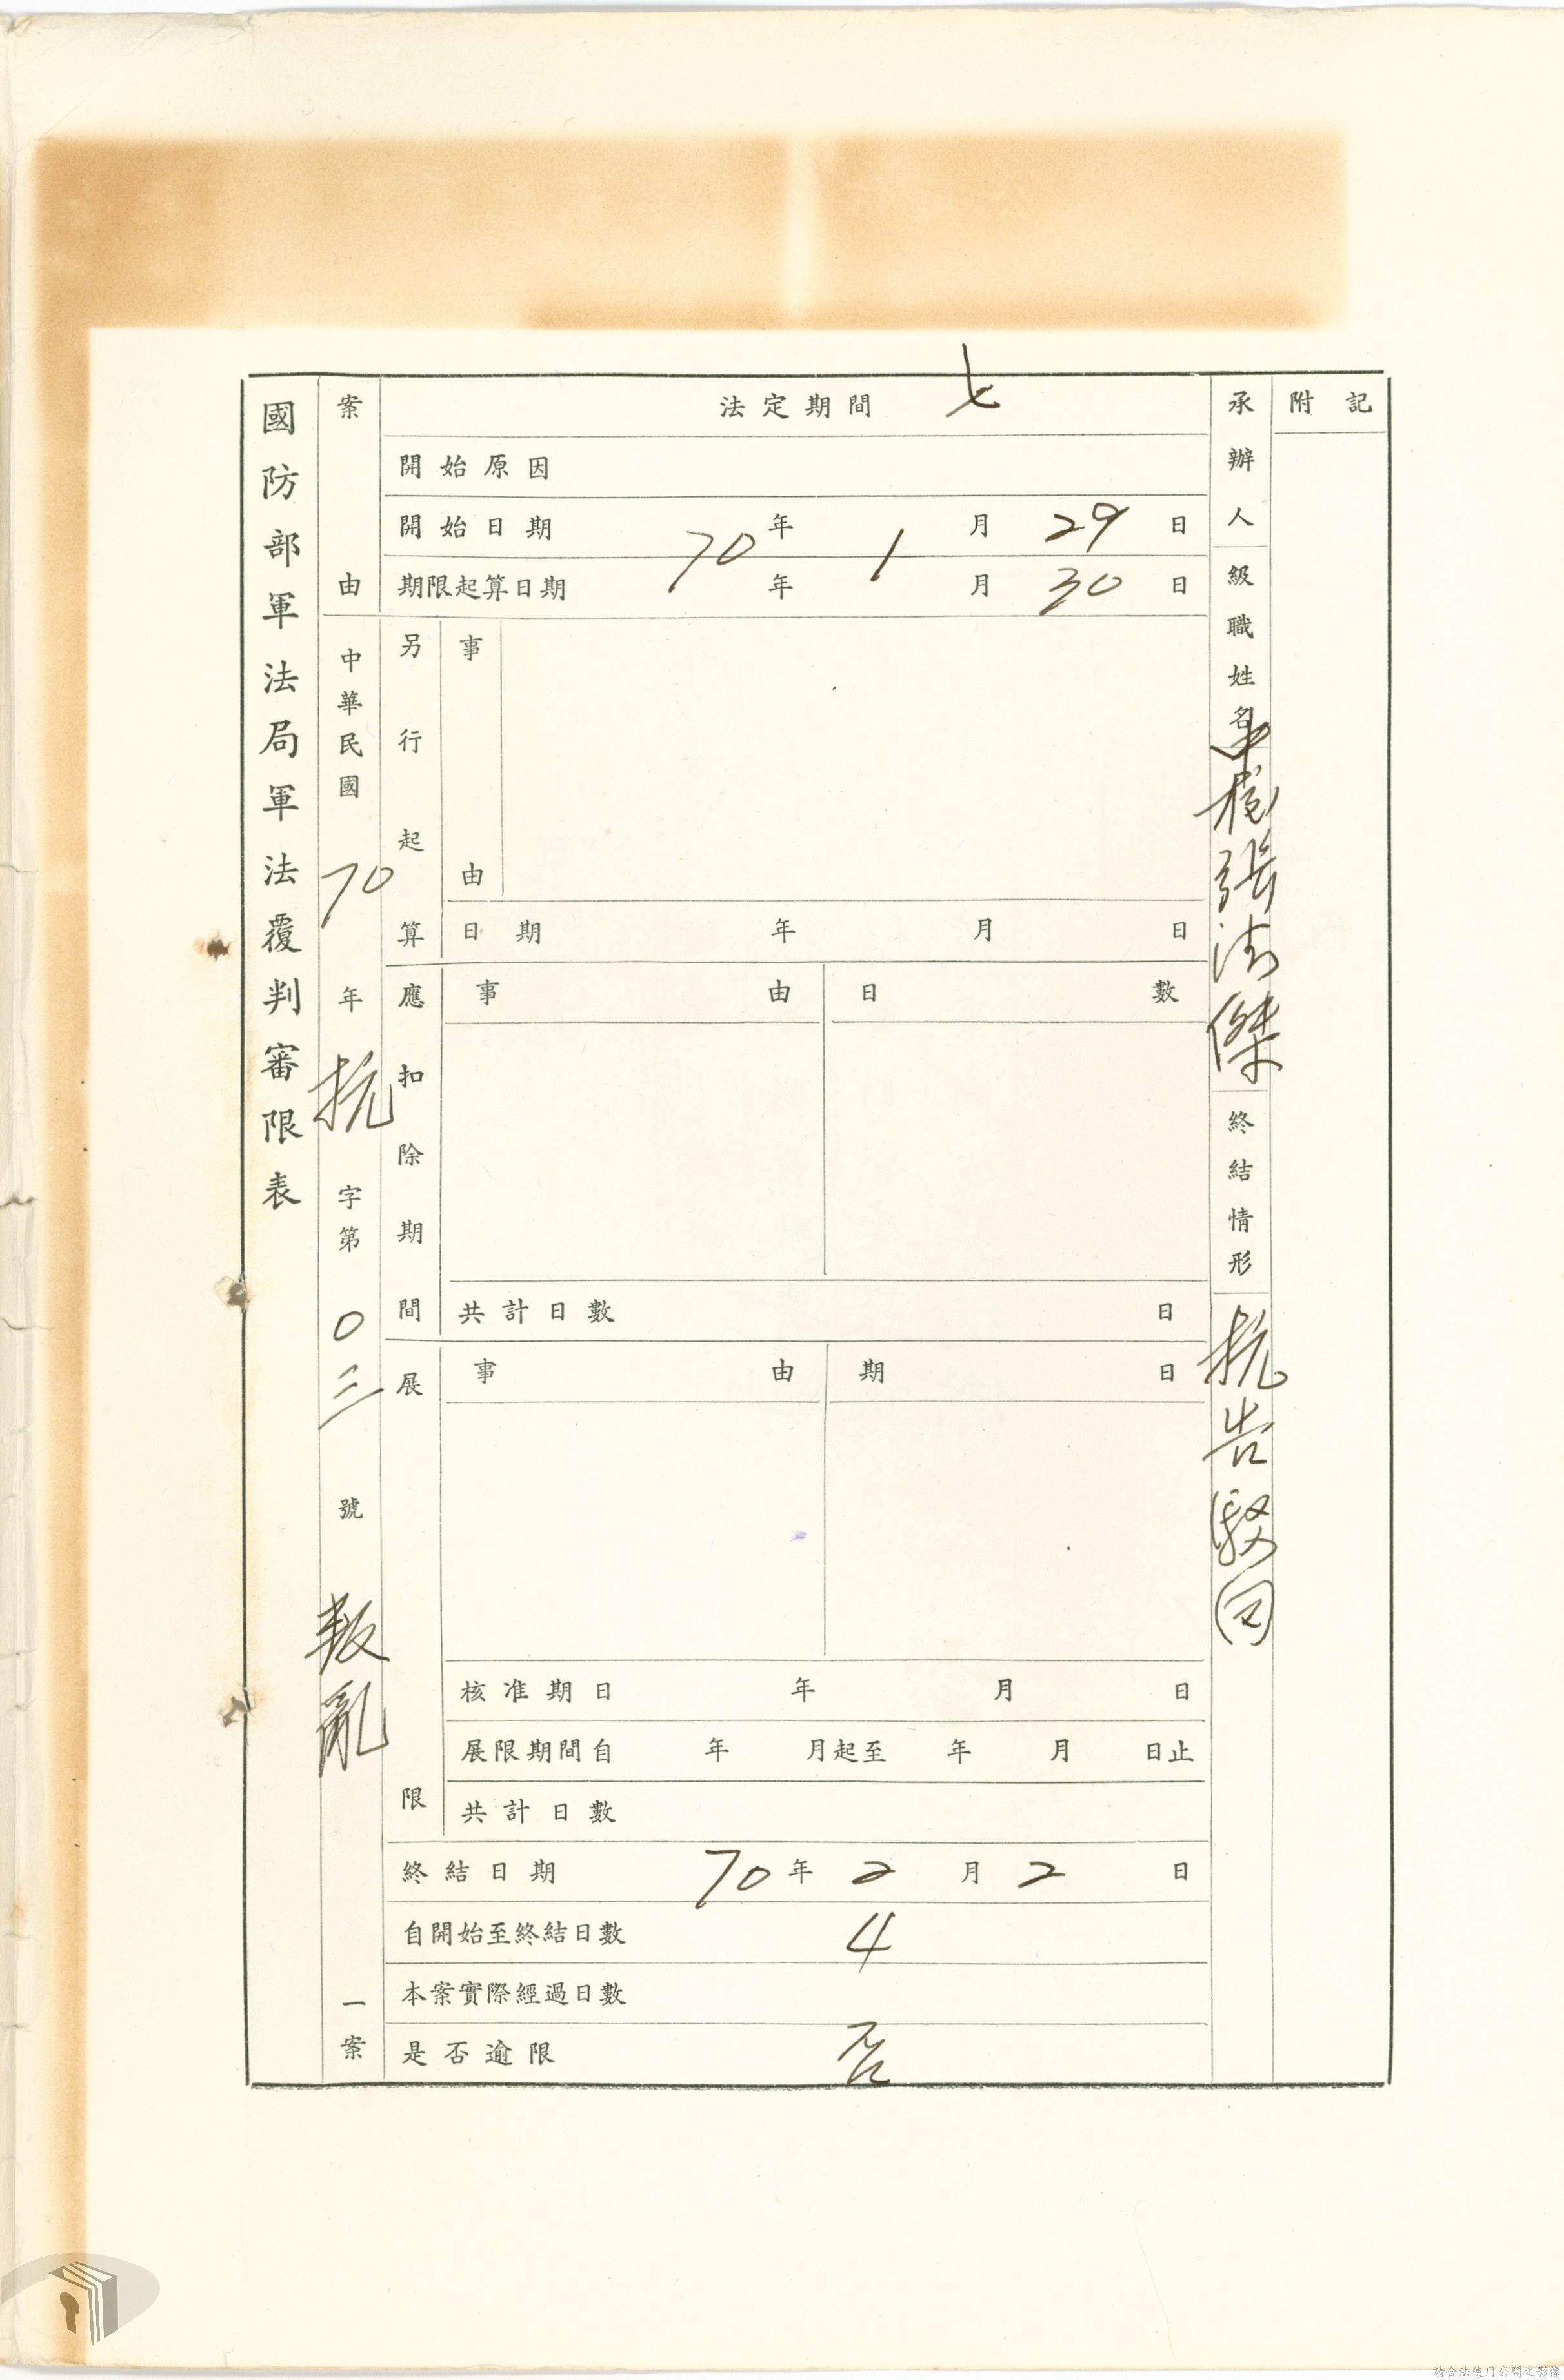 國防部軍法局軍法覆判審限表
案由
中華民國70年抗字第0三號叛亂一案
法定期間 七
開始原因
開始日期 70年1月29日
期限起算日期 年 月30日
另行起算
事由
日期 年 月 日
應扣除期間
事由 日數
共計日數 日
展限
事由 期日
核准期日 年 月 日
展限期間自 年 月起至 年 月 日止
共計日數
終結日期 70年2月2日
自開始至終結日數 4
本案實際經過日數
是否逾限 否
承辦人級職姓名 中校張 傑
終結情形 抗告駁回
附記
請合法使用公開之影像